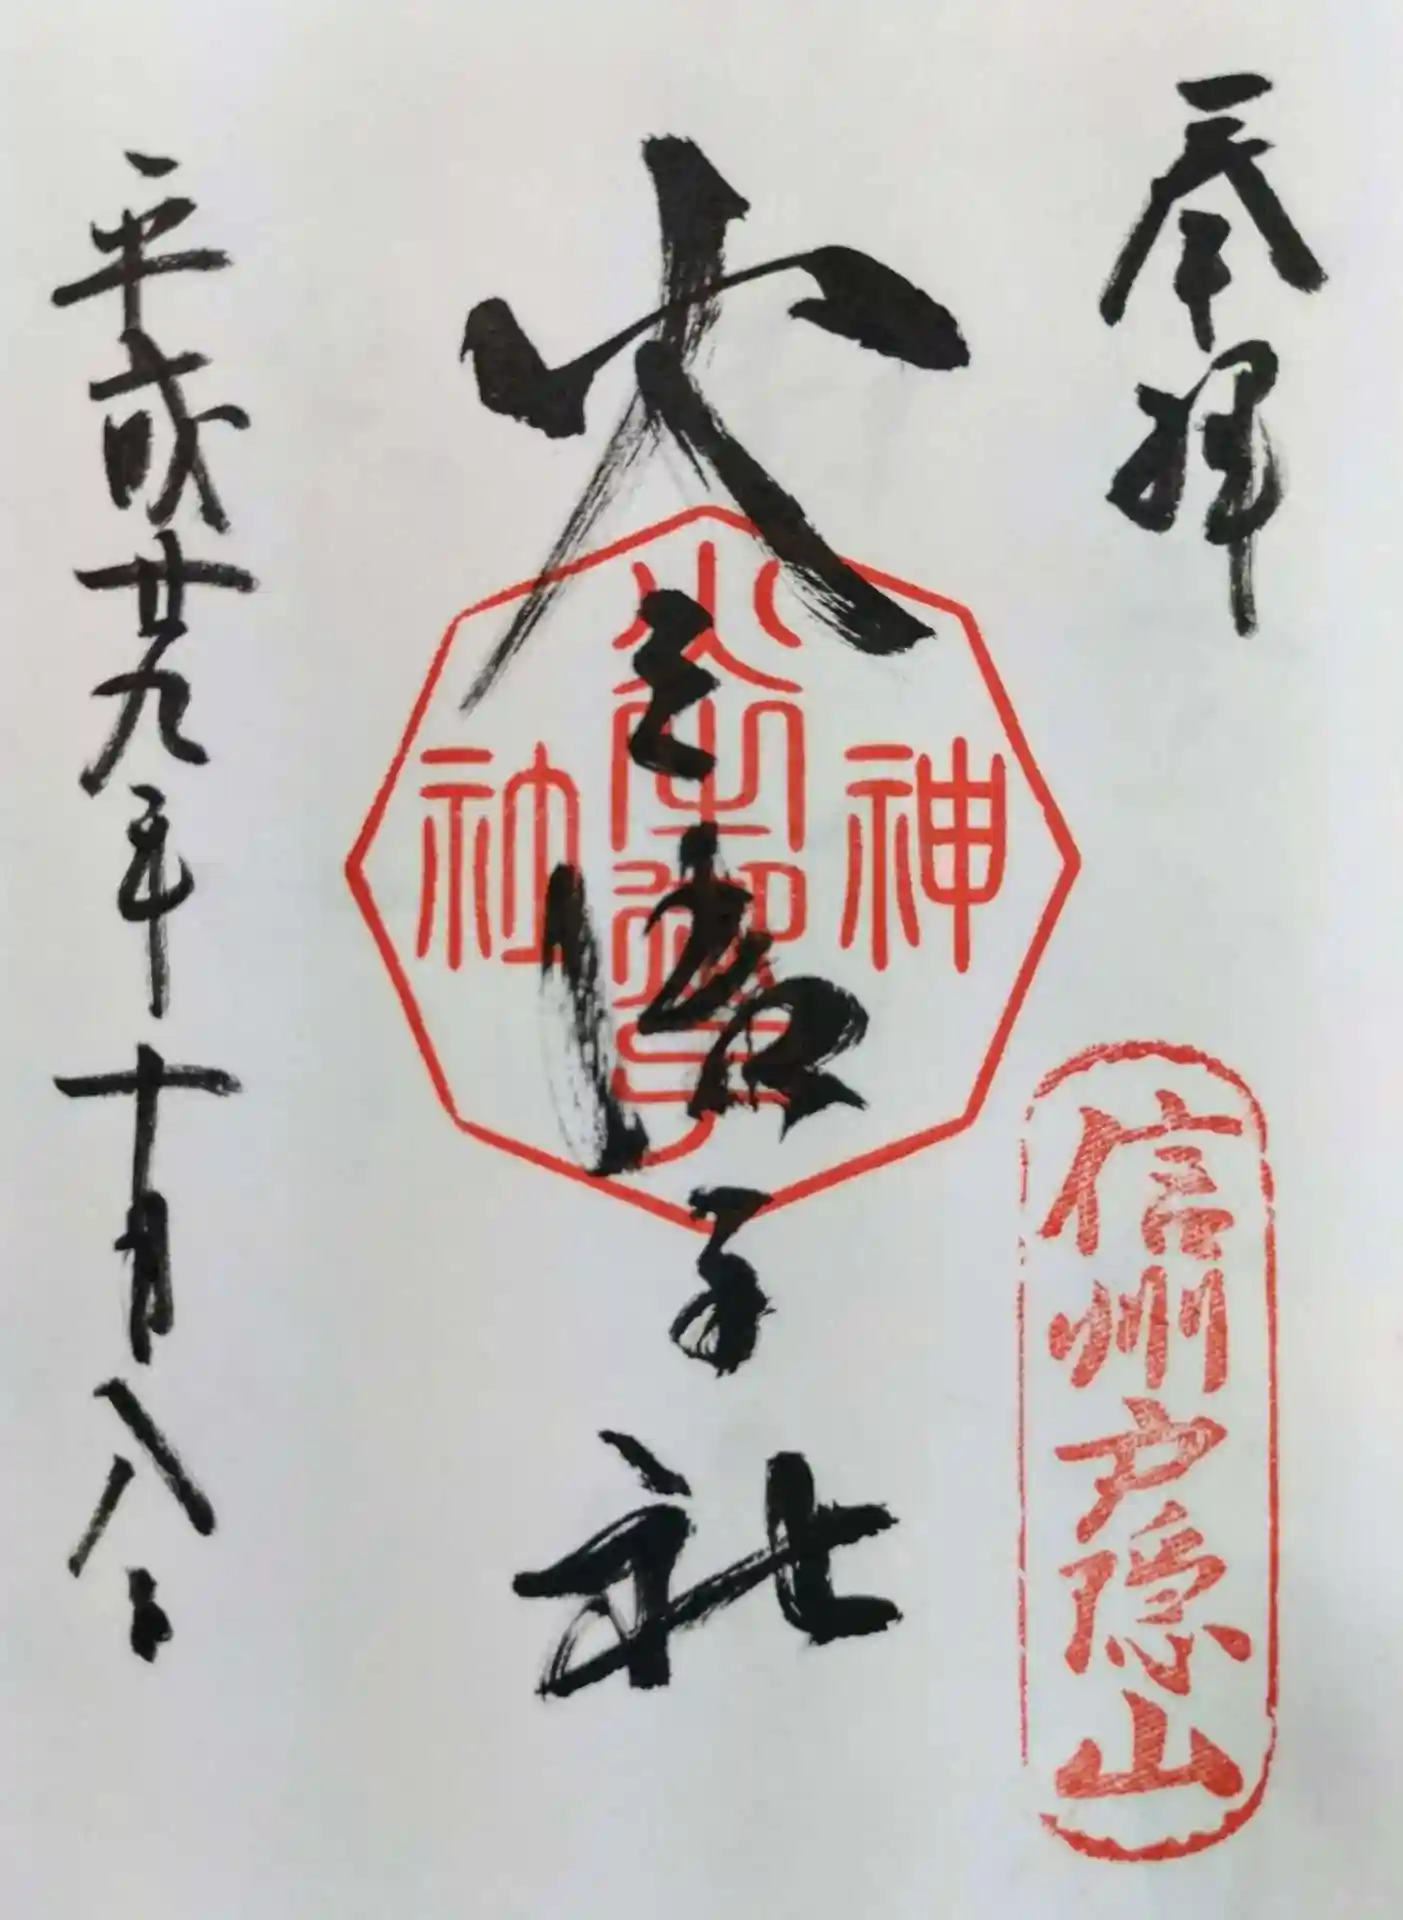 奉拝
信州戸隠山
火之御子社
火之御子
神社
平成廿九年十月八日